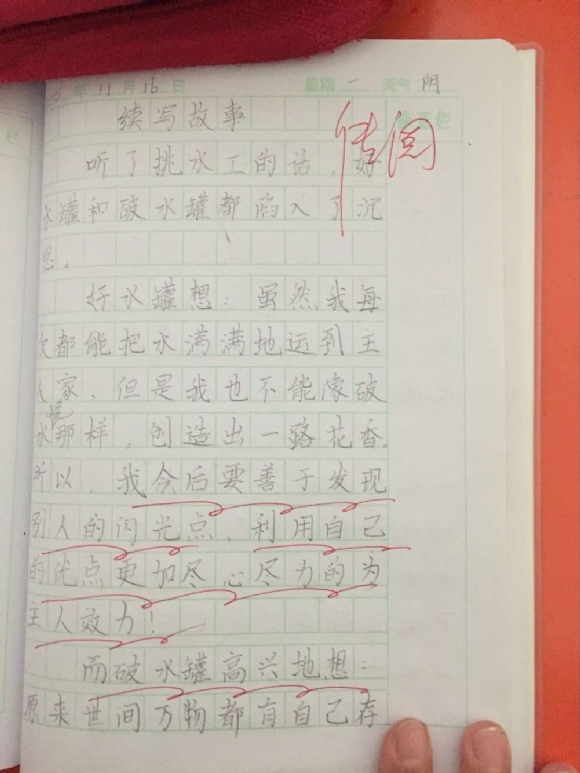 年 11 月 16 日 星期 一 天气 阴
续写故事
传阅
听了挑水工的话，好
水罐和破水罐都陷入了沉
思。
好水罐想：虽然我每
次都能把水满满地运到主
人家，但是我也不能像破
水罐那样，创造出一路花香。
所以，我今后要善于发现
别人的闪光点，利用自己
的优点更加尽心尽力的为
主人效力！
而破水罐高兴地想：
原来世间万物都有自己存